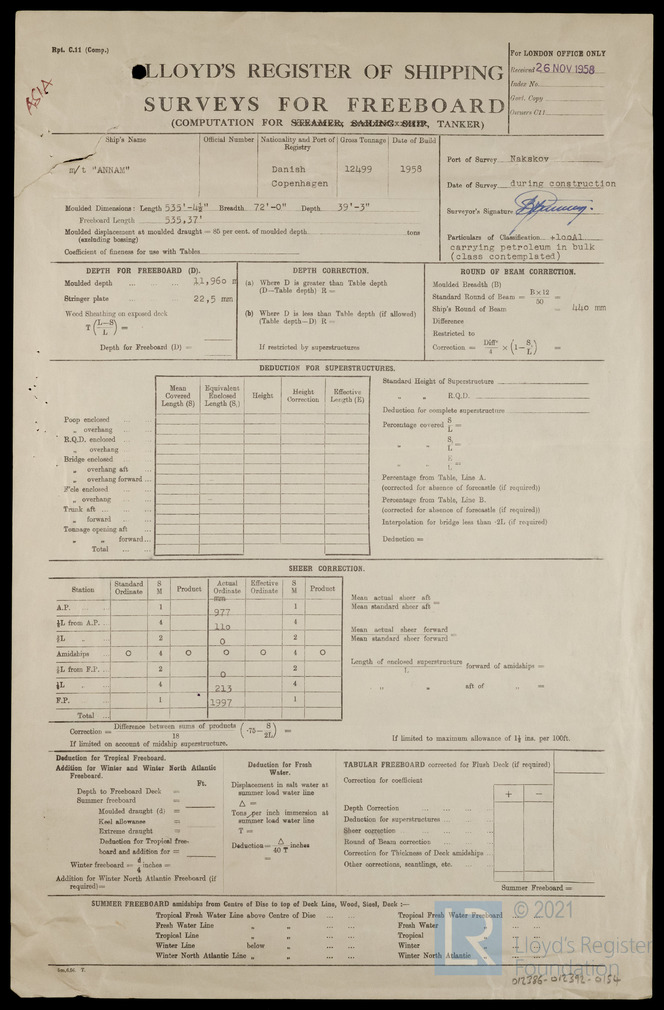 Rpt. C.11 (Comp.)
For LONDON OFFICE ONLY
LLOYD'S REGISTER OF SHIPPING
Received 26 NOV 1958
ASIA
Index No.
SURVEYS FOR FREEBOARD
Govt. Copy
(COMPUTATION FOR STEAMER, SAILING SHIP, TANKER)
Owners C11
Ship's Name
Official Number
Nationality and Port of Registry
Gross Tonnage
Date of Build
m/t "ANNAM"
Danish
Copenhagen
12499
1958
Port of Survey Nakskov
Date of Survey during construction
Surveyor's Signature
Particulars of Classification +100A1
carrying petroleum in bulk
(class contemplated)
Moulded Dimensions: Length 535'-4½" Breadth 72'-0" Depth 39'-3"
Freeboard Length 535,37'
Moulded displacement at moulded draught = 85 per cent. of moulded depth tons
(excluding bossing)
Coefficient of fineness for use with Tables
DEPTH FOR FREEBOARD (D).
Moulded depth ... ... 11,960 m
Stringer plate ... 22,5 mm
Wood Sheathing on exposed deck
T (L–S/L) =
Depth for Freeboard (D) =
DEPTH CORRECTION.
(a) Where D is greater than Table depth
(D—Table depth) R =
(b) Where D is less than Table depth (if allowed)
(Table depth—D) R =
If restricted by superstructures
ROUND OF BEAM CORRECTION.
Moulded Breadth (B)
Standard Round of Beam = B×12/50 =
Ship's Round of Beam = 440 mm
Difference
Restricted to
Correction = Diffce/4 × (1–S/L) =
DEDUCTION FOR SUPERSTRUCTURES.
Mean Covered Length (S)
Equivalent Enclosed Length (S₁)
Height
Height Correction
Effective Length (E)
Poop enclosed
„ overhang
R.Q.D. enclosed
„ overhang
Bridge enclosed
„ overhang aft
„ overhang forward
F'cle enclosed
„ overhang
Trunk aft
„ forward
Tonnage opening aft
„ „ forward
Total
Standard Height of Superstructure
„ „ R.Q.D.
Deduction for complete superstructure
Percentage covered S/L =
„ „ S₁/L =
„ „ E/L =
Percentage from Table, Line A.
(corrected for absence of forecastle (if required))
Percentage from Table, Line B.
(corrected for absence of forecastle (if required))
Interpolation for bridge less than ·2L (if required)
Deduction =
SHEER CORRECTION.
Station
Standard Ordinate
S M
Product
Actual Ordinate
Effective Ordinate
S M
Product
mm
A.P. 1 977 1
⅙L from A.P. 4 110 4
⅓L „ 2 0 2
Amidships 0 4 0 0 0 4 0
⅓L from F.P. 2 0 2
⅙L „ 4 213 4
F.P. 1 1997 1
Total
Mean actual sheer aft
Mean standard sheer aft =
Mean actual sheer forward
Mean standard sheer forward =
Length of enclosed superstructure/L forward of amidships =
„ „ aft of „ =
Correction = Difference between sums of products/18 (·75–S/2L) =
If limited on account of midship superstructure.
If limited to maximum allowance of 1½ ins. per 100ft.
Deduction for Tropical Freeboard.
Addition for Winter and Winter North Atlantic Freeboard.
Ft.
Depth to Freeboard Deck =
Summer freeboard =
Moulded draught (d) =
Keel allowance =
Extreme draught =
Deduction for Tropical freeboard and addition for =
Winter freeboard = d/4 inches =
Addition for Winter North Atlantic Freeboard (if required) =
Deduction for Fresh Water.
Displacement in salt water at summer load water line
Δ =
Tons per inch immersion at summer load water line
T =
Deduction = Δ/40 T inches
=
TABULAR FREEBOARD corrected for Flush Deck (if required)
Correction for coefficient
+ –
Depth Correction
Deduction for superstructures
Sheer correction
Round of Beam correction
Correction for Thickness of Deck amidships
Other corrections, scantlings, etc.
Summer Freeboard =
SUMMER FREEBOARD amidships from Centre of Disc to top of Deck Line, Wood, Steel, Deck :—
Tropical Fresh Water Line above Centre of Disc
Tropical Fresh Water Freeboard
Fresh Water Line „ „
Fresh Water „
Tropical Line „ „
Tropical „
Winter Line below „
Winter „
Winter North Atlantic Line „ „
Winter North Atlantic „
© 2021
Lloyd's Register
Foundation
LR
012386-012392-0154